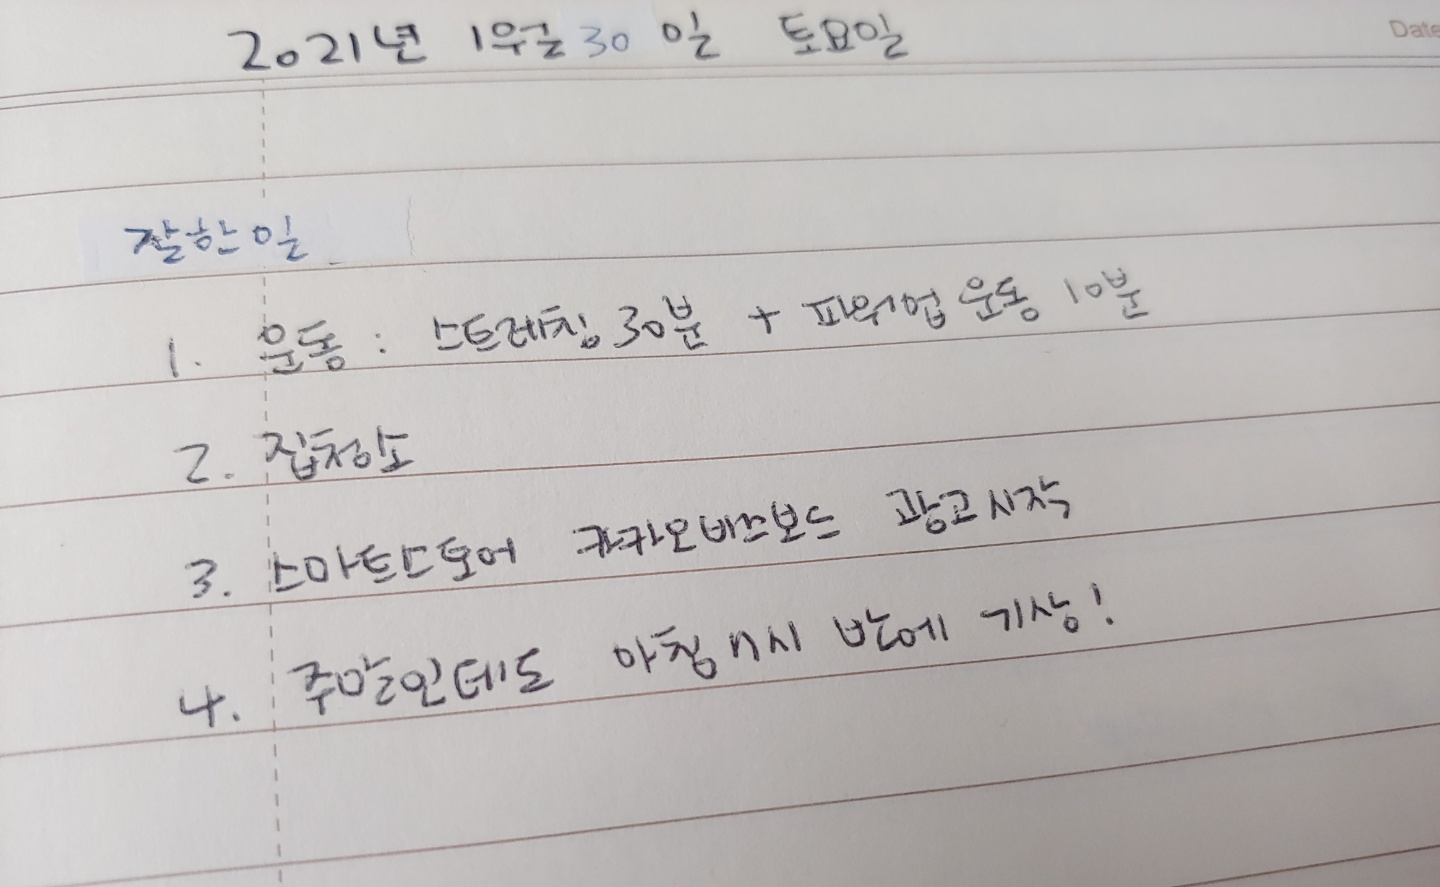 2021년 1월 30일 토요일
Date
잘한일
1. 운동 : 스트레칭 30분 + 파워업 운동 10분
2. 집청소
3. 스마트스토어 카카오비즈보드 광고시작
4. 주말인데도 아침 7시 반에 기상!